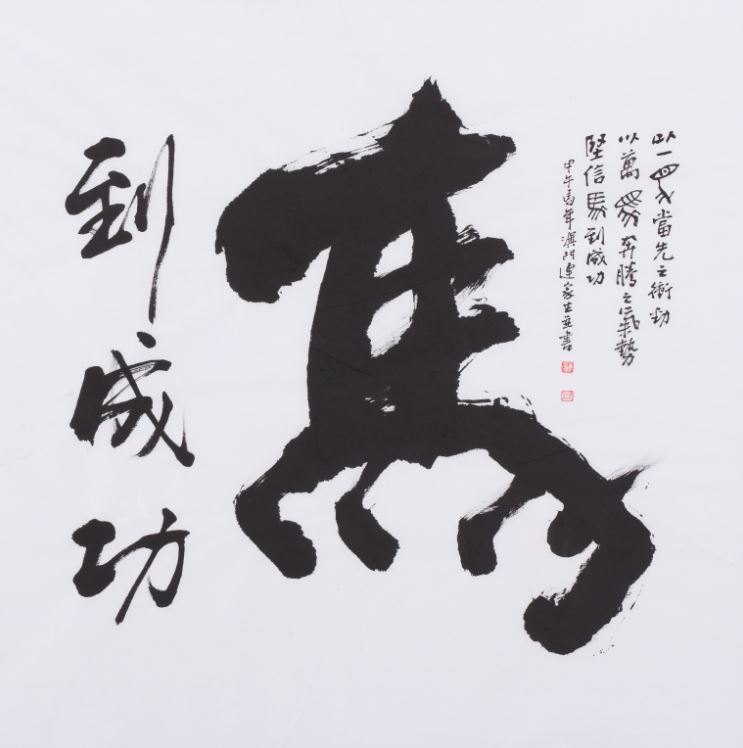 馬
到成功
以一馬當先之衝勁
以萬馬奔騰之氣勢
堅信馬到成功
甲午馬年濠門連家生並書